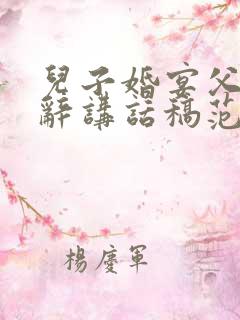 兒子婚宴父
辭講話稿范
楊慶軍